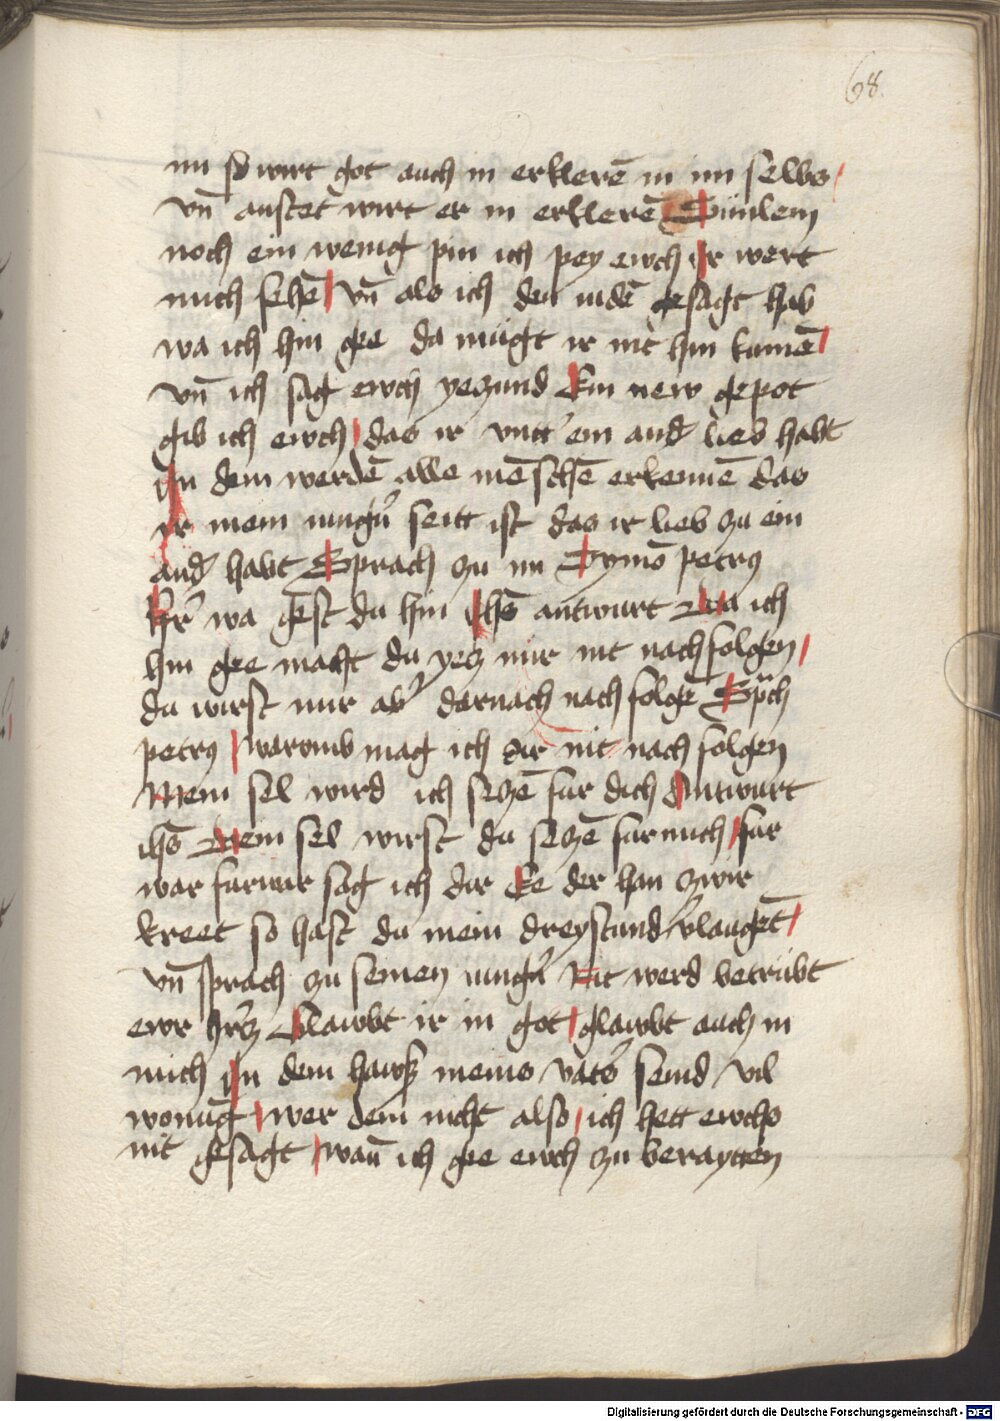 68
im so wirt got auch in erklerē in im selbs
vn̄ anstet wirt er in erklerē Sünlein
noch ein wenig pin ich pey ewch Ir wert
mich sehē vn̄ als ich den iudē gesagt hab
wa ich hin gee da mügt ir nit hin kumē
vn̄ ich sag ewch yeczund Ein new gepot
gib ich ewch das ir vntt' ein and' lieb habt
In dem werdē alle mēschē erkennē das
ir mein iung'n seitt ist das ir lieb zu ein
and' habt Sprach zu im Symō petrus
h'r wa gest du hin ihs̄ antwurt Wa ich
hin gee macht du yecz mir nit nachfolgen
du wirst mir ab' darnach nach folgē Sp'ch
petrus warvmb mag ich dir nit nach folgen
Mein sel wird ich seczē fur dich Antwurt
ihs̄ Dein sel wirst du seczē fur mich fur
war furwar sag ich dir Ee der han zwir
kreet so hast du mein dreystund v'laugēt
vn̄ sprach zu seinen iung'n Nit werd betrübt
ewr h'cz Glawbt ir in got glawbt auch in
mich In dem hawß meins vat's seind vil
wonūg wer dem nicht also ich hett ewchs
nit gesagt wan̄ ich gee ewch zu beraytten
Digitalisierung gefördert durch die Deutsche Forschungsgemeinschaft - DFG